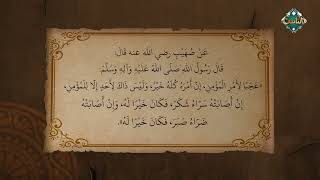 عَنْ صُهَيْبٍ رضي الله عنه قَالَ
قَالَ رَسُولُ اللهِ صَلَّى اللهُ عَلَيْهِ وَآلِهِ وَسَلَّمَ
«عَجَبًا لأَمْرِ الْمُؤْمِنِ، إِنَّ أَمْرَهُ كُلَّهُ خَيْرٌ، وَلَيْسَ ذَاكَ لأَحَدٍ إِلَّا لِلْمُؤْمِنِ،
إِنْ أَصَابَتْهُ سَرَّاءُ شَكَرَ، فَكَانَ خَيْرًا لَهُ، وَإِنْ أَصَابَتْهُ
ضَرَّاءُ صَبَرَ، فَكَانَ خَيْرًا لَهُ».